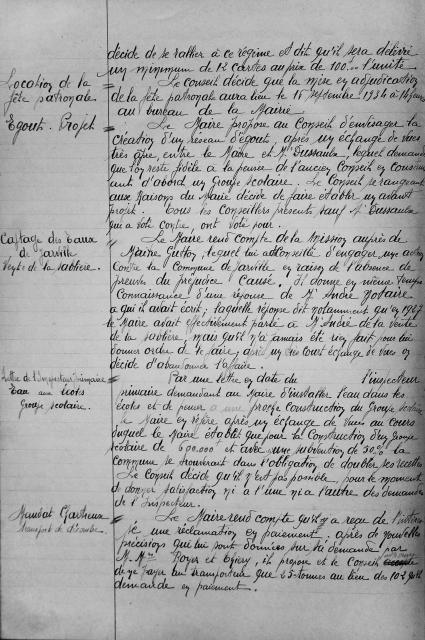 décide de se rallier à ce régime et dit qu'il sera délivré
un minimum de 12 cartes au prix de 100 l'unité
Location de la
fête patronale
Le Conseil décide que la mise en adjudication
de la fête patronale aura lieu le 15 Septembre 1934 à
au bureau de la Mairie
Egout. Projet
Le Maire propose au Conseil d'envisager la
création d'un réseau d'égout, après un échange de vues
très âpre entre le Maire et Mr Dussaulx, lequel demande
que l'on reste fidèle à la pensée de l'ancien Conseil en
d'abord un Groupe scolaire. Le Conseil se rangeant
aux raisons du Maire décide de faire établir un avant
projet. Tous les Conseillers présents sauf Mr Dussaulx
qui a voté contre, ont voté pour.
Captage des Eaux
de Jarville
Vente de la sablière.
Le Maire rend compte de la mission auprès de
Maître lequel lui a déconseillé d'engager une action
contre la Commune de Jarville en raison de l'absence de
preuves du préjudice causé. Il donne en même temps
connaissance d'une réponse de Mr André Notaire
à qui il avait écrit; laquelle réponse dit notamment qu'en 1927
le Maire avait effectivement parlé à Mr André de la vente
de la sablière, mais qu'il n'a jamais été rien fait pour lui
donner ordre de le faire, après un très court échange de vues on
décide d'abandonner l'affaire.
Lettre de l'Inspecteur Primaire
Eau aux écoles
Groupe scolaire.
Par une lettre en date du l'inspecteur
primaire demandant au Maire d'installer l'eau dans les
écoles et de penser à une proche construction du Groupe scolaire
le Maire en réfère après un échange de vues au cours
duquel le Maire établit que pour la construction d'un groupe
scolaire de 600.000 et avec une subvention de 50% la
commune se trouverait dans l'obligation de doubler ses recettes
Le Conseil décide qu'il n'est pas possible, pour le moment
de donner satisfaction ni à l'une ni à l'autre des demandes
de l'Inspecteur.
Mandat
transport de
Le Maire rend compte qu'il y a reçu de
une réclamation en paiement; après de nouvelles
précisions qui lui sont données sur sa demande par
M.M. Royer et il propose et le Conseil
de ne payer au transporteur que 25 tonnes au lieu des
demande en paiement.